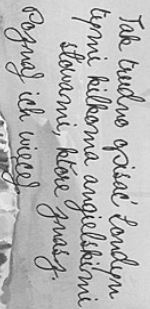 Tak trudno opisać Londyn
tymi kilkoma angielskimi
słowami, które znasz.
Poznaj ich więcej